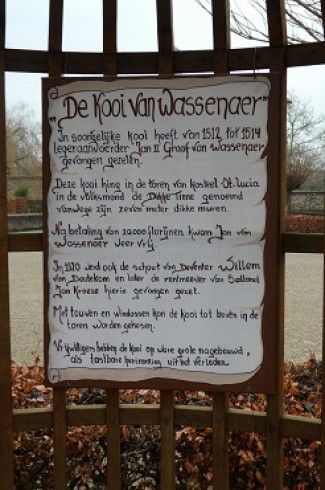 "De Kooi van Wassenaer"
In soortgelijke kooi heeft van 1512 tot 1514
legeraanvoerder Jan II Graaf van Wassenaer
gevangen gezeten.
Deze kooi hing in de toren van kasteel St. Lucia
in de volksmond de Dikke Tiene genoemd
vanwege zijn zeven meter dikke muren.
Na betaling van 20.000 florijnen kwam Jan van
Wassenaer weer vrij.
In 1570 werd ook de schout van Deventer Willem
van Doetekom en later de rentmeester van Salland
Jan Kroeze hierin gevangen gezet.
Met touwen en windassen kon de kooi tot boven in de
toren worden gehesen.
Vrijwilligers hebben de kooi op ware grote nagebouwd,
als tastbare herinnering uit het verleden.